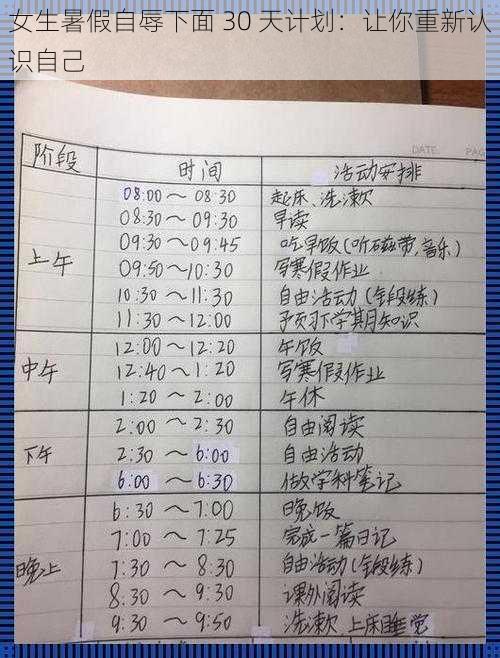 女生暑假自辱下面 30 天计划：让你重新认
识自己
DATE PAG
阶段 时间 活动安排
08:00～08:30 起床、洗漱
08:30～09:30 早读
09:30～09:45 吃早饭(听磁带,音乐)
上午 09:50～10:30 写寒假作业
10:30～11:30 自由活动(锻炼)
11:30～12:00 预习下学期知识
12:00～12:20 午饭
中午 12:40～1:20 写寒假作业
1:20～2:00 午休
2:00～2:30 自由阅读
下午 2:30～6:00 自由活动
6:00～6:30 做学科笔记
6:30～7:00 晚饭
7:00～7:25 完成一篇日记
晚上 7:30～8:30 自由活动(锻炼)
8:30～9:30 课外阅读
9:30～9:50 洗漱 上床睡觉